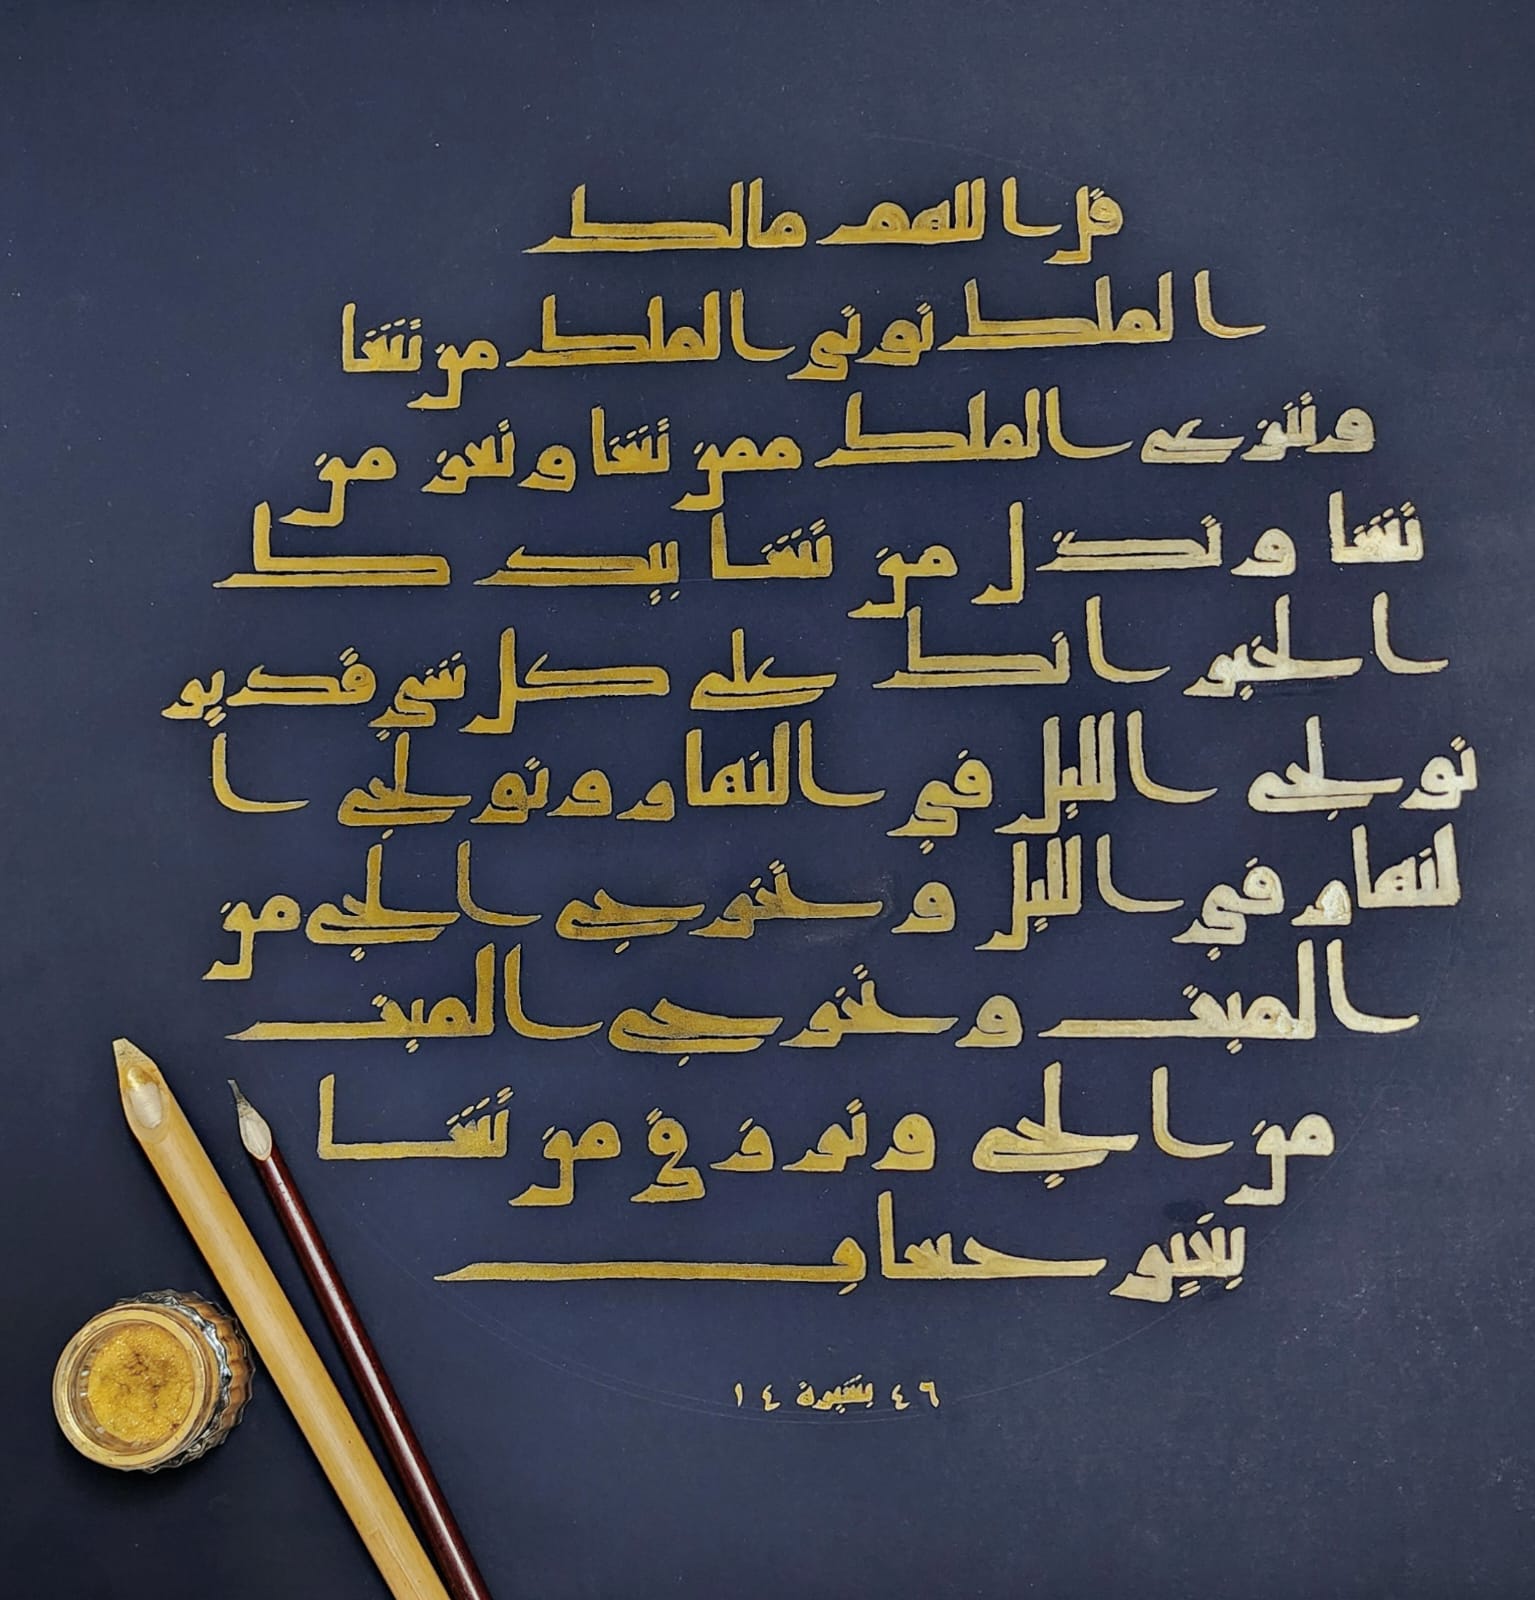 قل اللهم مالك
الملك توتي الملك من تشا
وتنزع الملك ممن تشا وتعز من
تشا وتذل من تشا بيدكا
لخير انك على كل شي قدير
تولج الليل في النهار وتولج ا
لنهار في الليل وتخرج الحي من
الميت وتخرج الميت
من الحي وترزق من تشا
بغير حساب